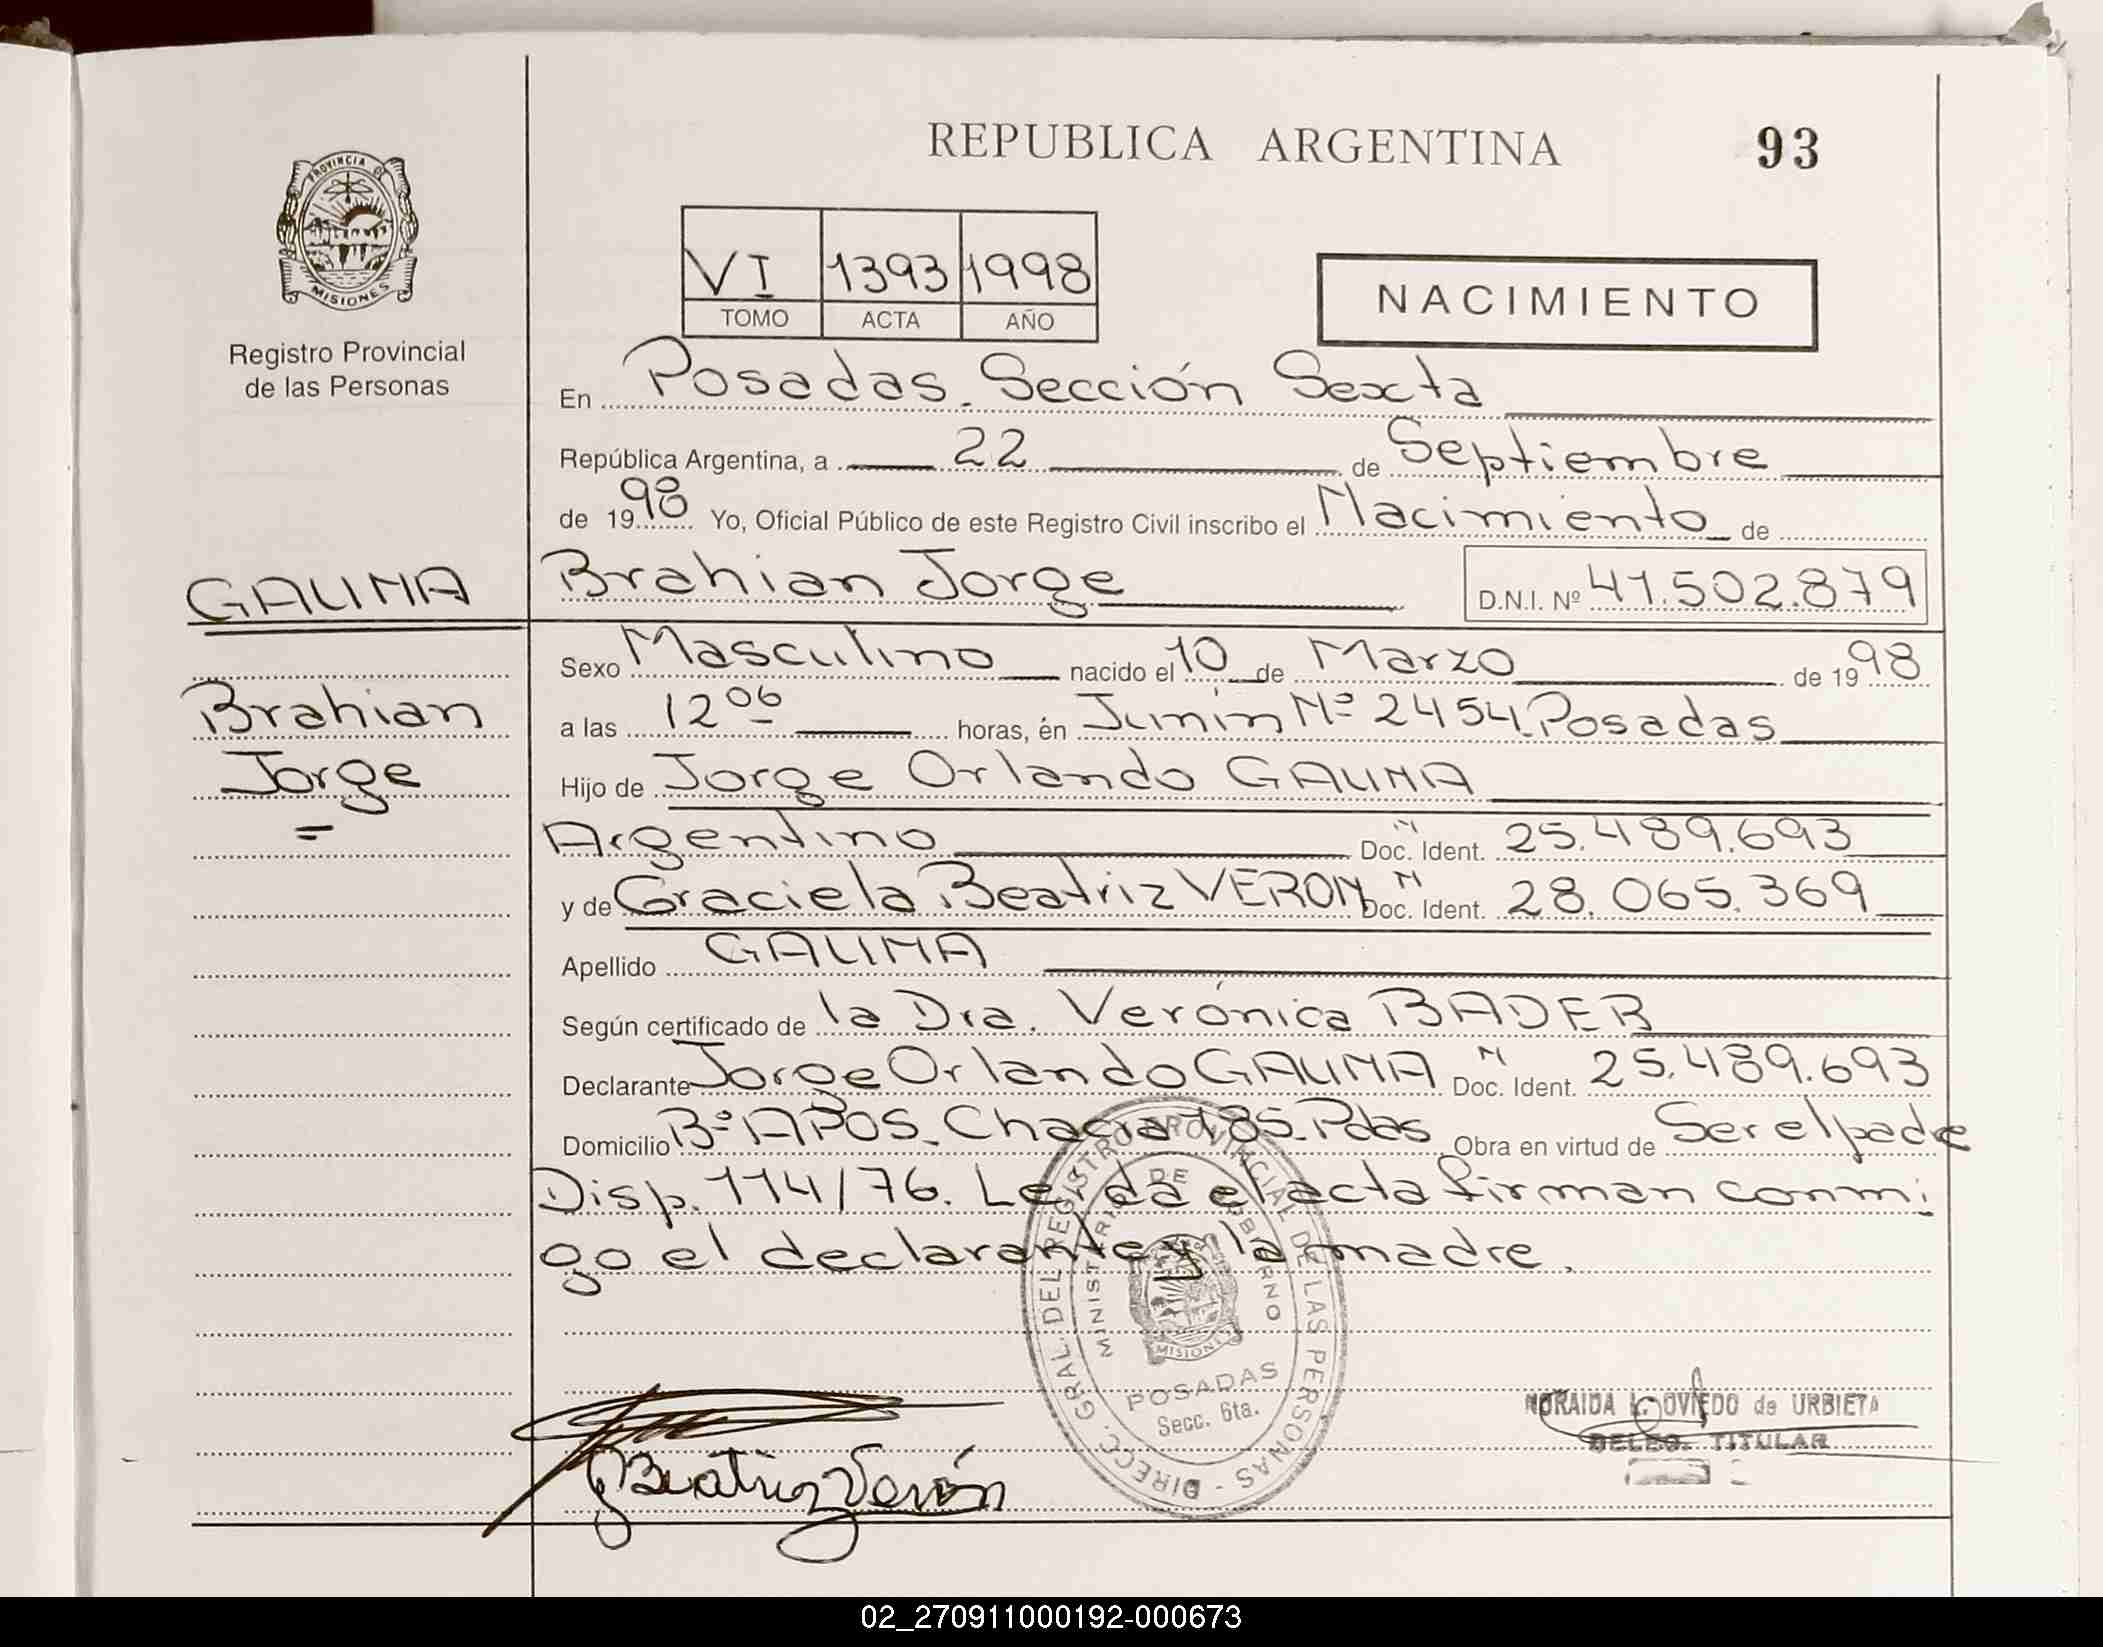 REPUBLICA ARGENTINA
93
PROVINCIA DE
MISIONES
Registro Provincial
de las Personas
VI 1393 1998
TOMO ACTA AÑO
NACIMIENTO
En Posadas. Sección Sexta
República Argentina, a 22 de Septiembre
de 1998 Yo, Oficial Público de este Registro Civil inscribo el Nacimiento de
GAUNA
Brahian Jorge
D.N.I. Nº 41.502.879
Brahian
Jorge
Sexo Masculino nacido el 10 de Marzo de 1998
a las 12 06 horas, én Junin Nº 2454. Posadas
Hijo de Jorge Orlando GAUNA
Argentino Doc. Ident. N 25.489.693
y de Graciela Beatriz VERON Doc. Ident. N 28.065.369
Apellido GAUNA
Según certificado de la Dra. Verónica BADER
Declarante Jorge Orlando GAUNA Doc. Ident. N 25.489.693
Domicilio Bº APOS. Chacra 185. Pdas Obra en virtud de Ser el padre
Disp. 114/76. Leída el acta firman conmi
go el declarante y la madre.
DIRECC. GRAL. DEL REGISTRO PROVINCIAL DE LAS PERSONAS -
MINISTERIO DE GOBIERNO
MISIONES
POSADAS
Secc. 6ta.
NORAIDA L. OVIEDO de URBIETA
DELEG. TITULAR
Beatriz Verón
02_270911000192-000673